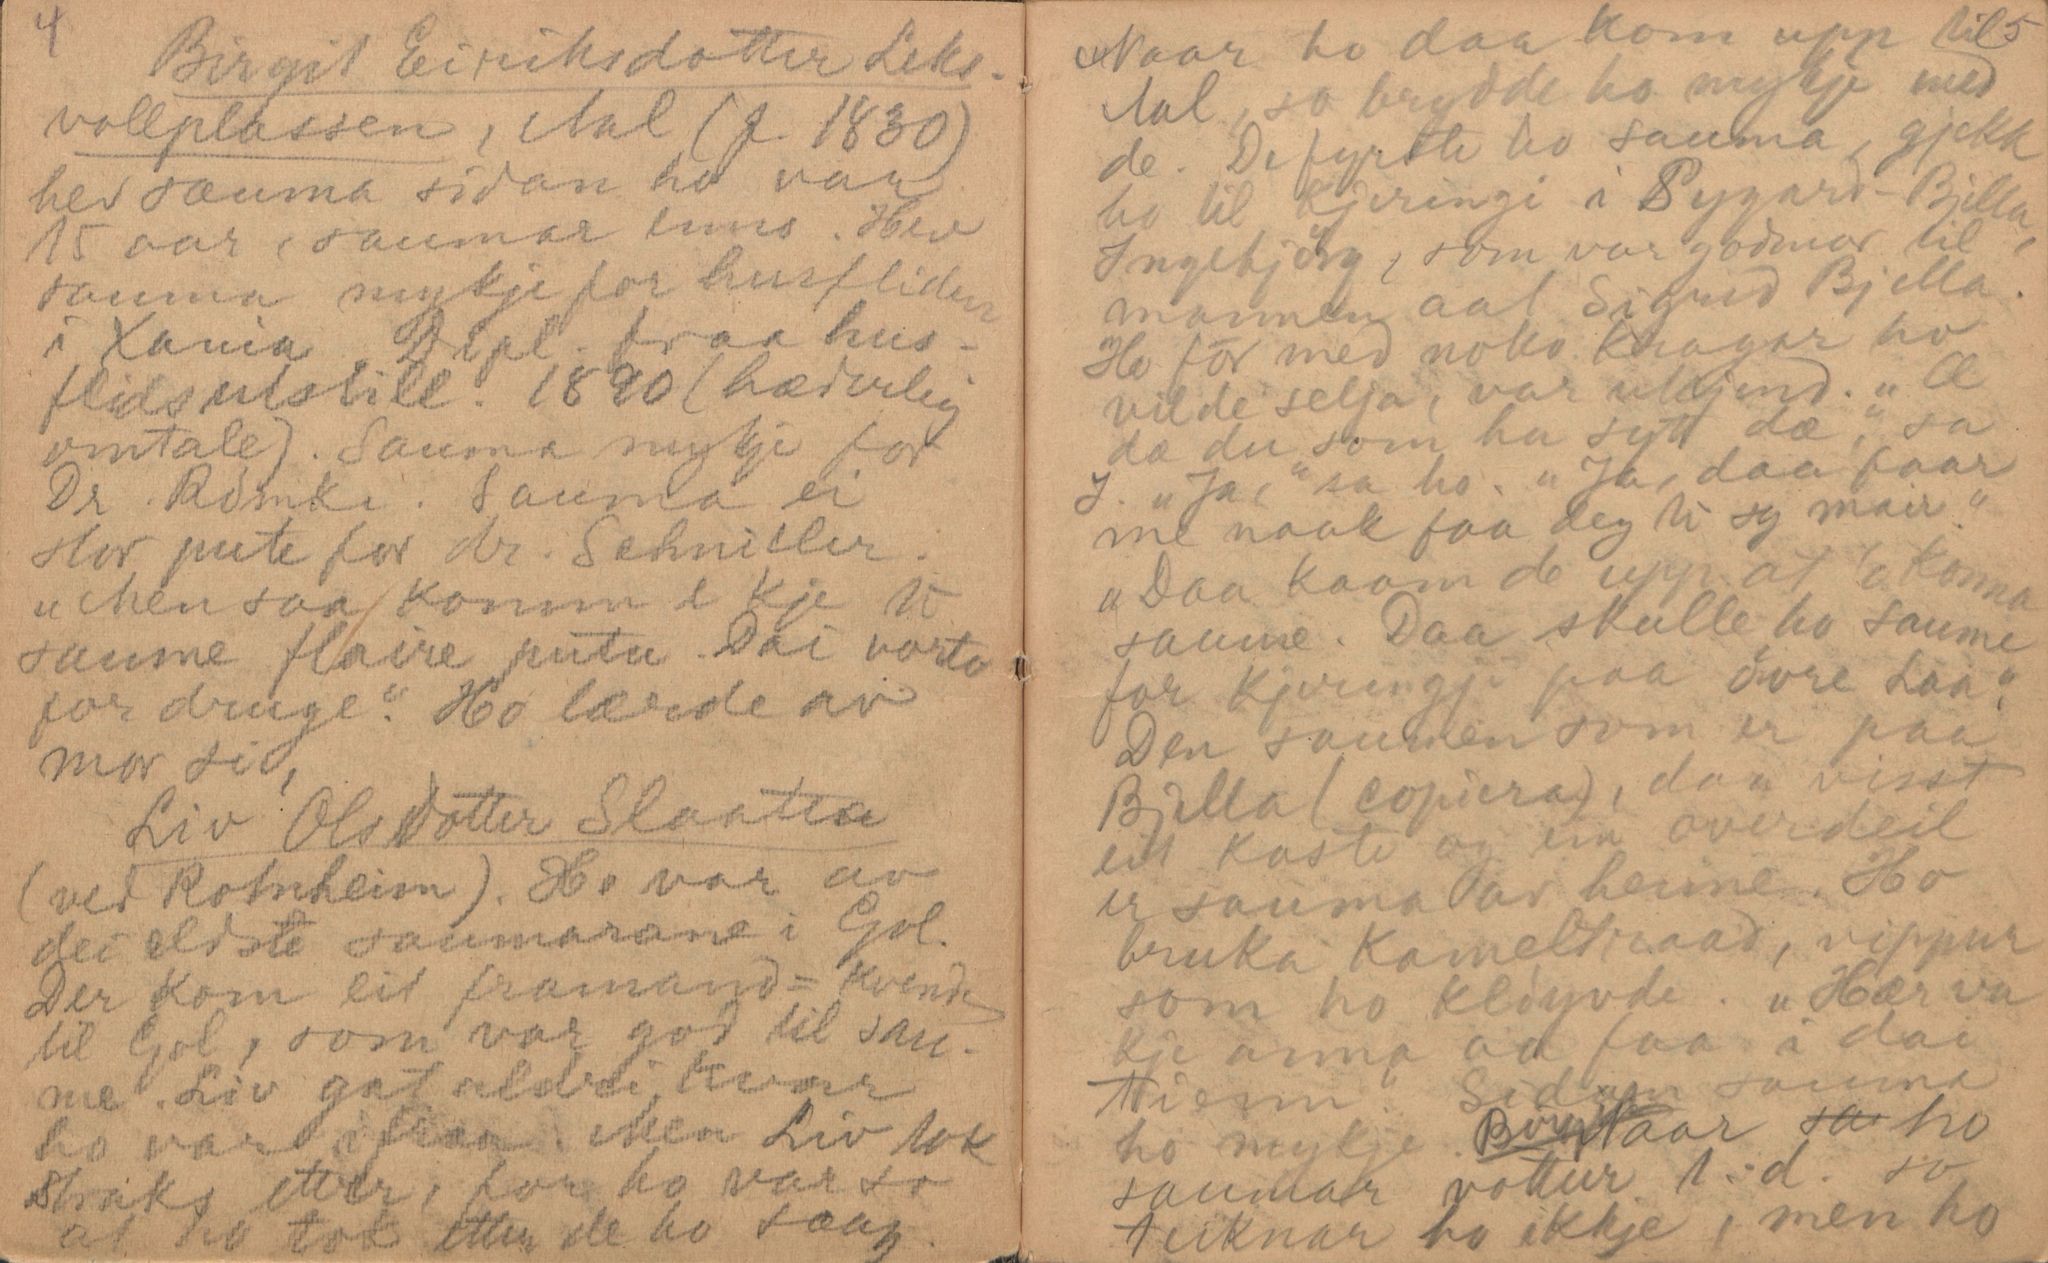 4
Birgit Eiriksdotter Leks-
vollplassen, Aal (f. 1830)
hev sauma sidan ho var
15 aar, saumar enno. Hev
sauma mykje for husfliden
i Xania. Dipl. fraa hus-
flidsutstill. 1890 (hæderlig
omtale). Sauma mykje for
Dr. Römke. Sauma ei
stor pute for dr. Schnitler.
"Men saa komm e kje ti
saume flaire putu. Dai vorto
for druge". Ho lærde av
mor si,
Liv Olsdotter Slaatta
(ved Rotnheim). Ho var av
dei eldste saumarane i Gol.
Der kom eit framand= kvende
til Gol, som var god til sau-
me. Liv gat aldri, kvar
ho var ifraa. Men Liv tok
straks etter, for ho var so
at ho tok etter de ho saag.
5
Naar ho daa kom upp til
Aal, so brydde ho mykje med
de. De fyrste ho sauma, gjekk
ho til kjeringi i Sygard-Bjella,
Ingebjörg, som var godmor til
mannen aat Sigrid Bjella.
Ho fór med noko kragar ho
vilde selja, var ukjend. "Æ
dæ du som ha sytt dæ," sa
I. "Ja," sa ho. "Ja, daa faar
me naak faa deg ti sy mair."
"Daa kaam de upp at 'o konna
saume. Daa skulle ho saume
for kjeringji paa övre Laa".
Den saumen som er paa
Bjella (copiera), daa visst
eit kaste og ein overdeil
er sauma av henne. Ho
bruka kameltraad, vippur
som ho klöyvde. "Hær va
kje anna aa faa i dai
tiienn". Sidan sauma
ho mykje. Naar sa ho
saumar vottur t.d. so
teiknar ho ikkje, men ho